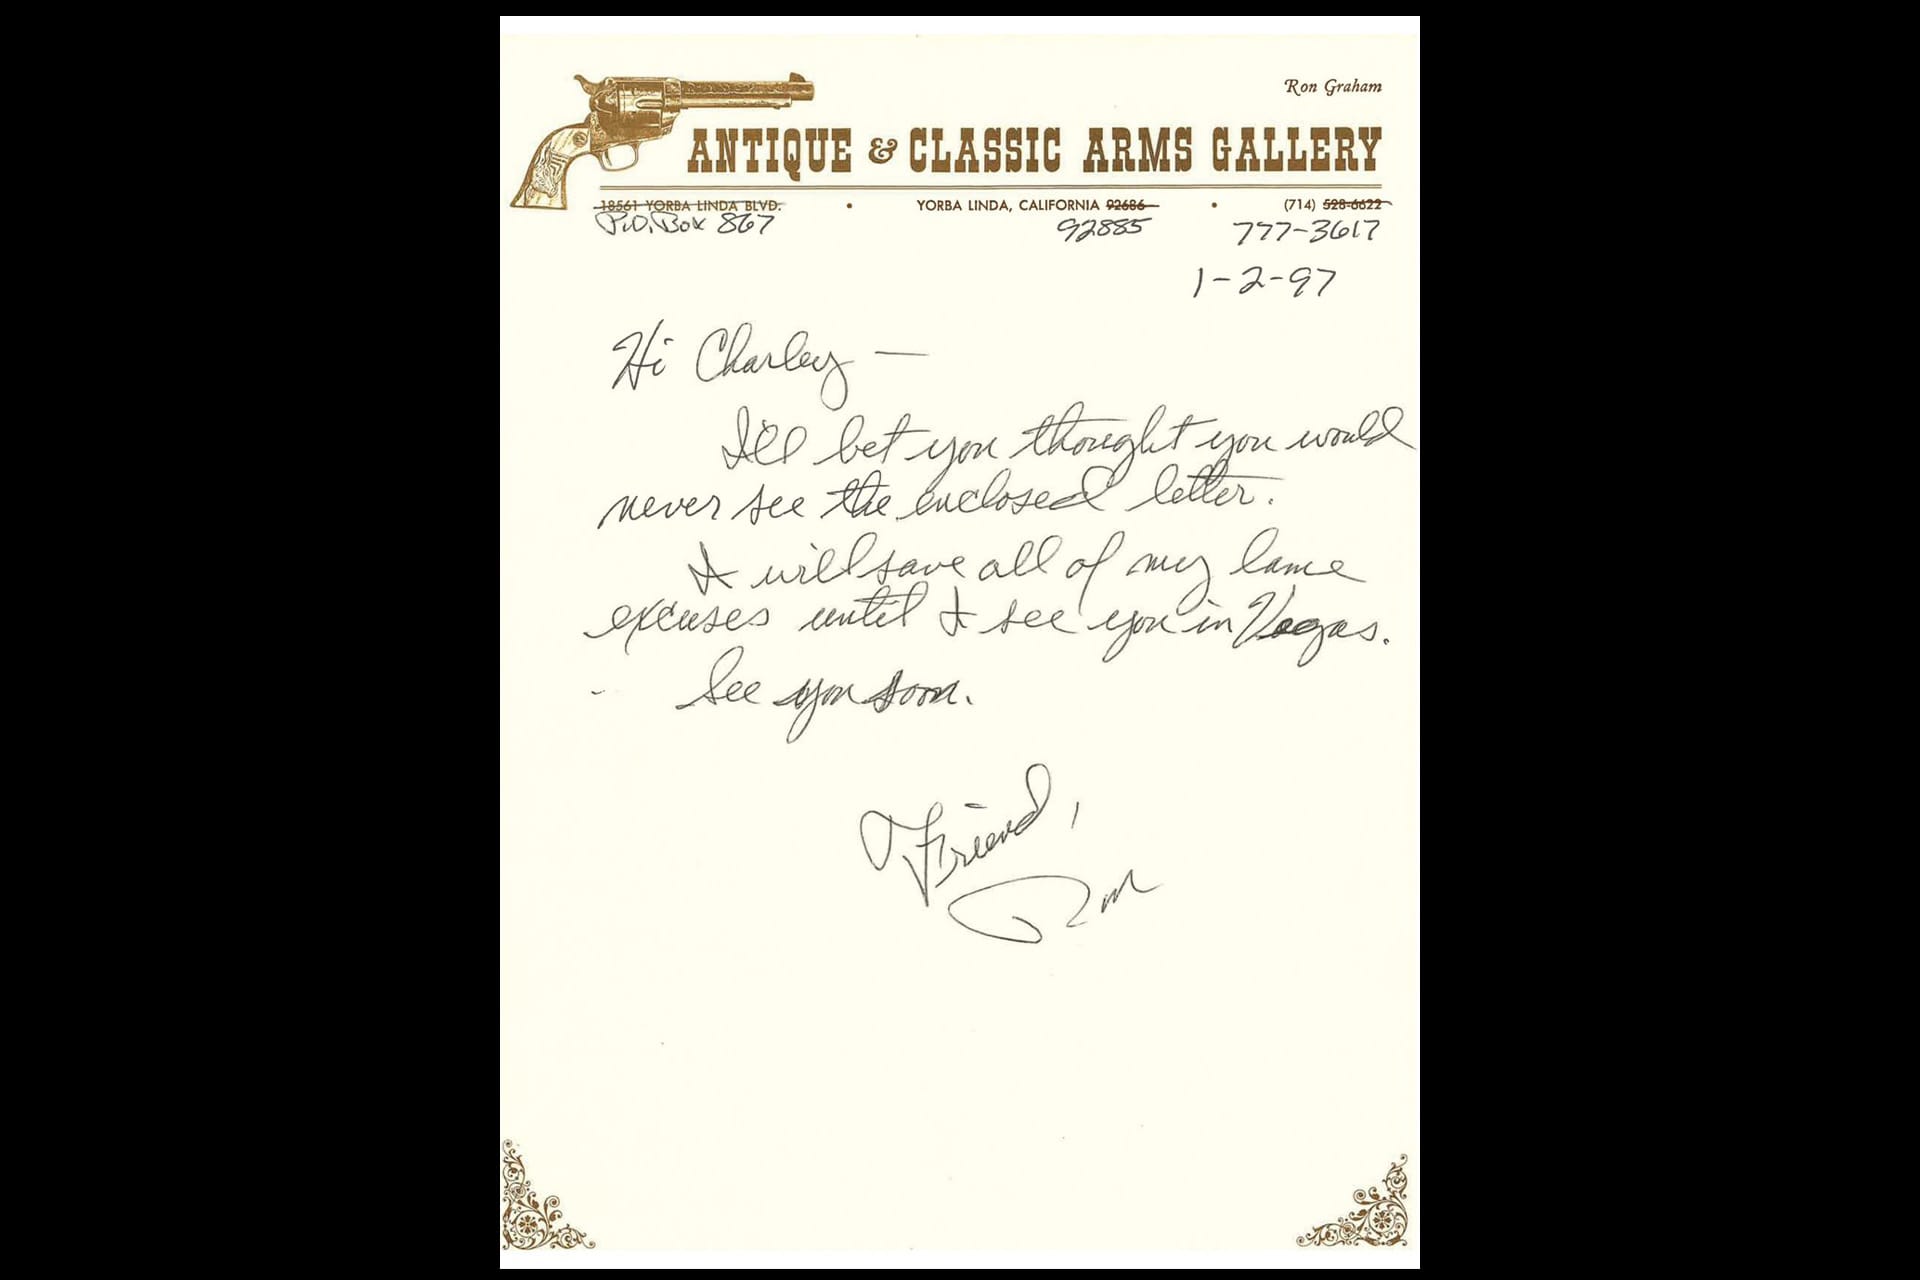 Ron Graham
ANTIQUE & CLASSIC ARMS GALLERY
18561 YORBA LINDA BLVD. • YORBA LINDA, CALIFORNIA 92686 • (714) 528-6622
P.O. Box 867 92885 777-3617
1-2-97
Hi Charley —
I'll bet you thought you would
never see the enclosed letter.
I will save all of my lame
excuses until I see you in Vegas.
See you soon.
Friend,
Ron